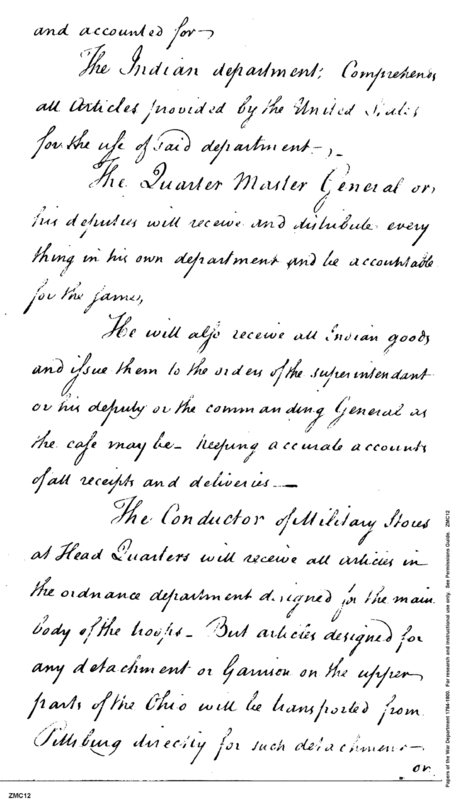 and accounted for—
The Indian department; Comprehends
all Articles provided by the United States
for the use of said department—
The Quarter Master General or
his deputies will receive and distribute every
thing in his own department and be accountable
for the same,
He will also receive all Indian goods
and issue them to the orders of the superintendant
or his deputy or the commanding General as
the case may be— keeping accurate accounts
of all receipts and deliveries—
The Conductor of Military Stores
at Head Quarters will receive all articles in
the ordnance department designed for the main
body of the troops— But articles designed for
any detachment or Garrison on the upper
parts of the Ohio will be transported from
Pittsburg directly for such detachment—
or
ZMC12
Papers of the War Department 1784-1800. For research and instructional use only. See Permissions Guide. ZMC12